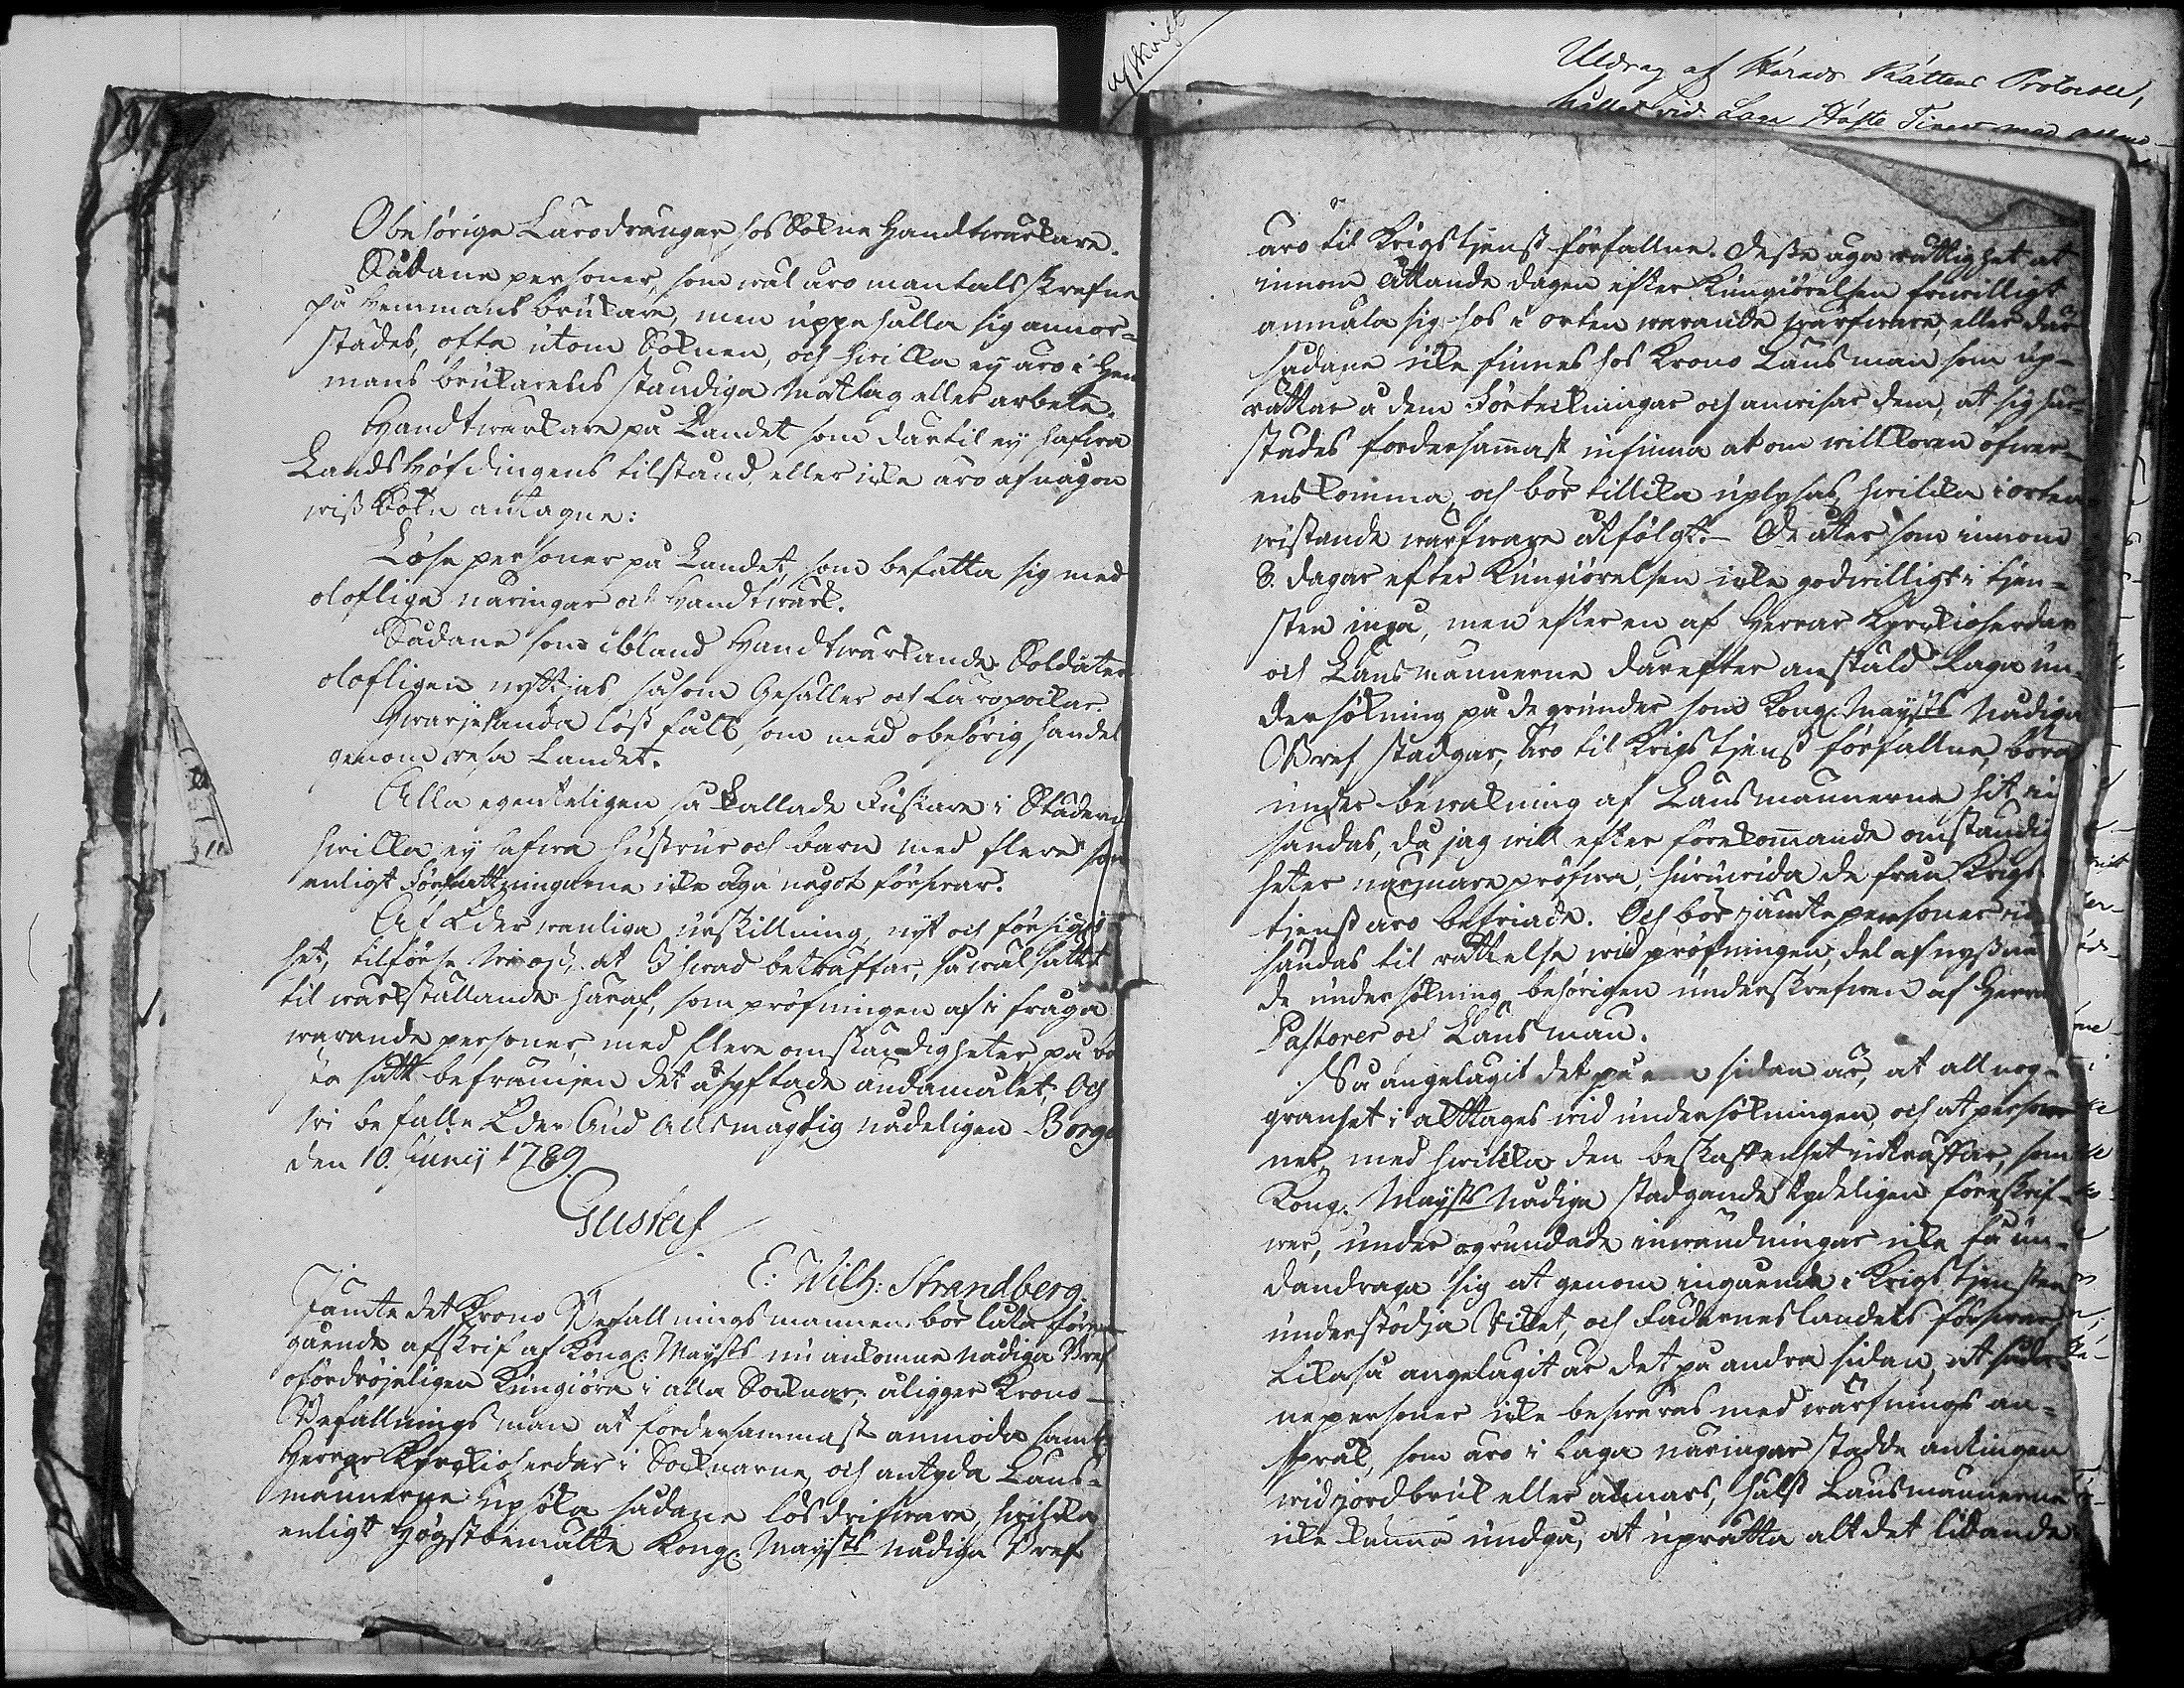 Obehörige Lärodrängar hos Sokne Handtwärkare.
Sådane personer, som wäl äro mantalsskrefne
på Hemmans brukare, men uppehålla sig annor-
städes, ofta utom Soknen, och hwilka ey äro i Hem
mans brukarens ständiga Matlag eller arbete.
Handtwärkare på Landet som därtil ey hafwa
Landshöfdingens tilstånd, eller icke äro af någon
wiss Sokn antagne:
Löse personer på Landet som befatta sig med
olaflige näringar och Handtwärk.
Sådane som ibland Handtwärkande Soldater
olofligen nyttjas såsom Gesäller och Läropoikar.
Kringwärjehanda löst folk, som med obehörig handel
genomresa Landet.
Alla egenteligen så kallade Fuskare i Städerne
hwilka ey hafwa hustrur och barn med flere som
enligt Författningarne icke äga något förswar.
Af Eder wanliga urskillning, nit och försigtig
het, tilförse Wi oss, at I hwad beträffar, såwäl sättet
til wärkställande häraf, som pröfningen af i fråga
warande personer, med flere omständigheter på bä
sta sätt befrämjen det åsyftade ändamålet, Och
Wi befalle Eder Gud Allsmägtig nådeligen. Borgo
den 10. Junij 1789.
Gustaf
E: Wilh: Strandberg.
Jämte det Krono Befallningsmannen bör låta före
gående afskrift af Kongl: Maÿsts nu ankomne nådiga Bref
ofördröjeligen Kungiöra i alla Soknar; åligger Krono
Befallningsman at fordersammast anmoda samtl
Herrar Kyrckioherdar i Soknarne, och antyda Läns-
männerne upsöka sådane lösdrifware, hwilka
enligt Högstbemälte Kongl: Maÿsts nådiga Bref
afskrift
Utdrag af Härads Rättens Protocoll,
hållet vid Laga Höste Tinget med Allmo-
äro til Krigstjenst förfallne. Desse äga rättighet at
innom Åttande dagen efter Kungiörelsen friwilligt
anmäla sig hos i orten warande wärfware, eller där
sådane icke finnes hos Krono Länsman som up-
rättar å dem Förtekningar och anwisar dem, at sig här-
städes fordersammast infinna at om willkoren öfwer-
enskomma, och bör tillika uplysas, hwilka i orten
wistande wärfware åtfölgt. De åter som innom
8. dagar efter Kungiörelsen icke godwilligt i tjen-
sten ingå, men efter en af Herrar Kyrckioherdar
och Länsmännerne därefter anstäld Laga un-
dersökning på de grunder som Kongl: Maÿsts Nådiga
Bref stadgar, äro til Krigstjenst förfallne, böra
under bewakning af Länsmännerne hit in
sändas, då jag will efter förekommande omständig
heter närmare pröfwa, huruwida de från Krigs-
tjenst äro befriade. Och bör jämte personer in-
sändas til rättelse wid pröfningen, del af nyssnäm
de undersökning behörigen underskrefwen af Herrar
Pastorer och Länsman.
Så angelägit det på ena sidan är, at all nog-
granhet i akttages wid undersökningen, och at personer
ner, med hwilka den beskaffenhet inträffar, som
Kongl: Maÿsts Nådiga stadgande tydeligen föreskrif-
wer, under ogrundade inwändningar icke få un-
dandraga sig at genom ingående i Krigstjensten
understödja Riket, och Fäderneslandets förswar,
Likaså angelägit är det på andra sidan, at såda-
ne personer icke beswäras med wärfnings an-
språk, som äro i laga näringar stadde antingen
wid jordbruk eller annars, hälst Länsmännerne
icke kunna undgå, at uprätta alt det lidande